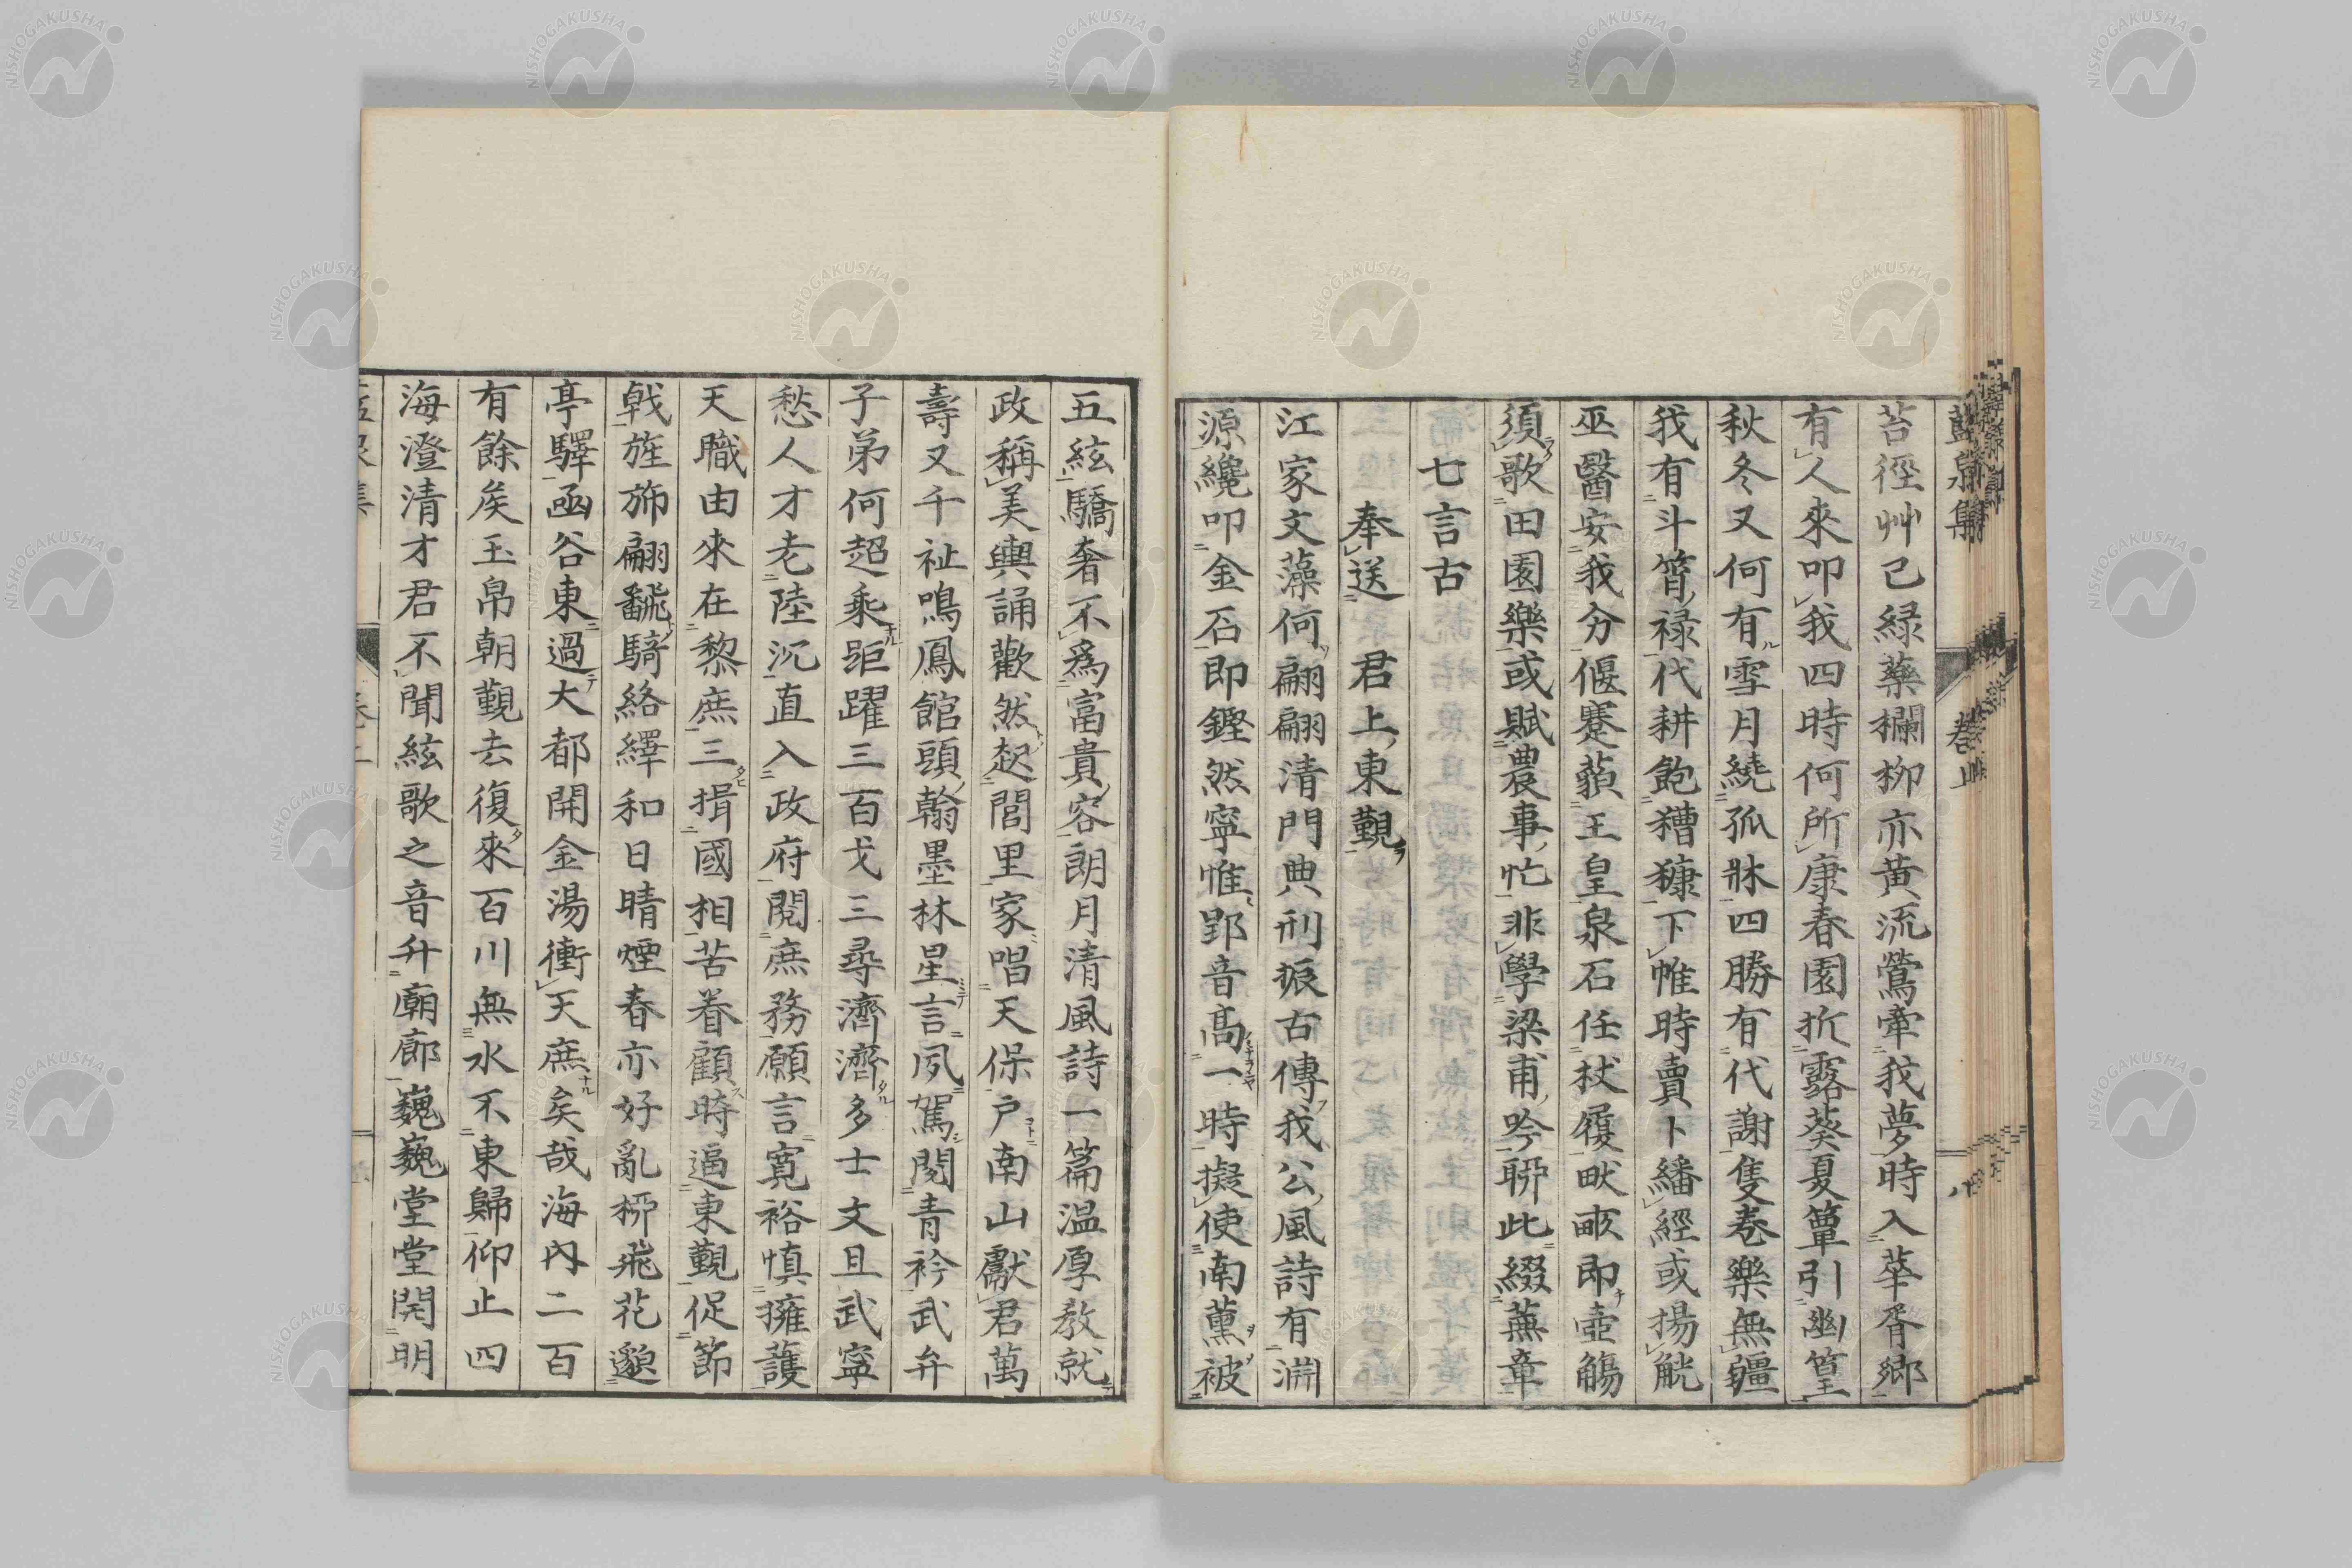 藍泉集 卷上 八
苔徑艸已緑藥欄柳亦黄流鶯牽我夢時入華胥郷
有人來叩我四時何所康春園折露葵夏簟引幽篁
秋冬又何有雪月繞孤牀四勝有代謝隻卷樂無疆
我有斗筲禄代耕飽糟糠下帷時賣卜繙經或揚觥
巫醫安我分偃蹇藐王皇泉石任杖履畎畝即壺觴
須歌田園樂或賦農事忙非學梁甫吟聊此綴蕪章
七言古
奉送君上東覲
江家文藻何翩翩清門典刑振古傳我公風詩有淵
源纔叩金石即鏗然寧惟郢音高一時擬使南薫被
五絃驕奢不爲富貴容朗月清風詩一篇温厚教就
政稱美輿誦歡然起閭里家唱天保户南山獻君萬
壽又千祉鳴鳳館頭翰墨林星言夙駕閲青衿武弁
子弟何超乘距躍三百戈三尋濟濟多士文且武寧
愁人才老陸沉直入政府閲庶務願言寛裕慎擁護
天職由來在黎庶三揖國相苦眷顧時逼東覲促節
戟旌斾翩飜騎絡繹和日晴煙春亦好亂柳飛花邈
亭驛凾谷東過大都開金湯衝天庶矣哉海內二百
有餘矣玉帛朝覲去復來百川無水不東歸仰止四
海澄清才君不聞絃歌之音升廟廊巍巍堂堂開明